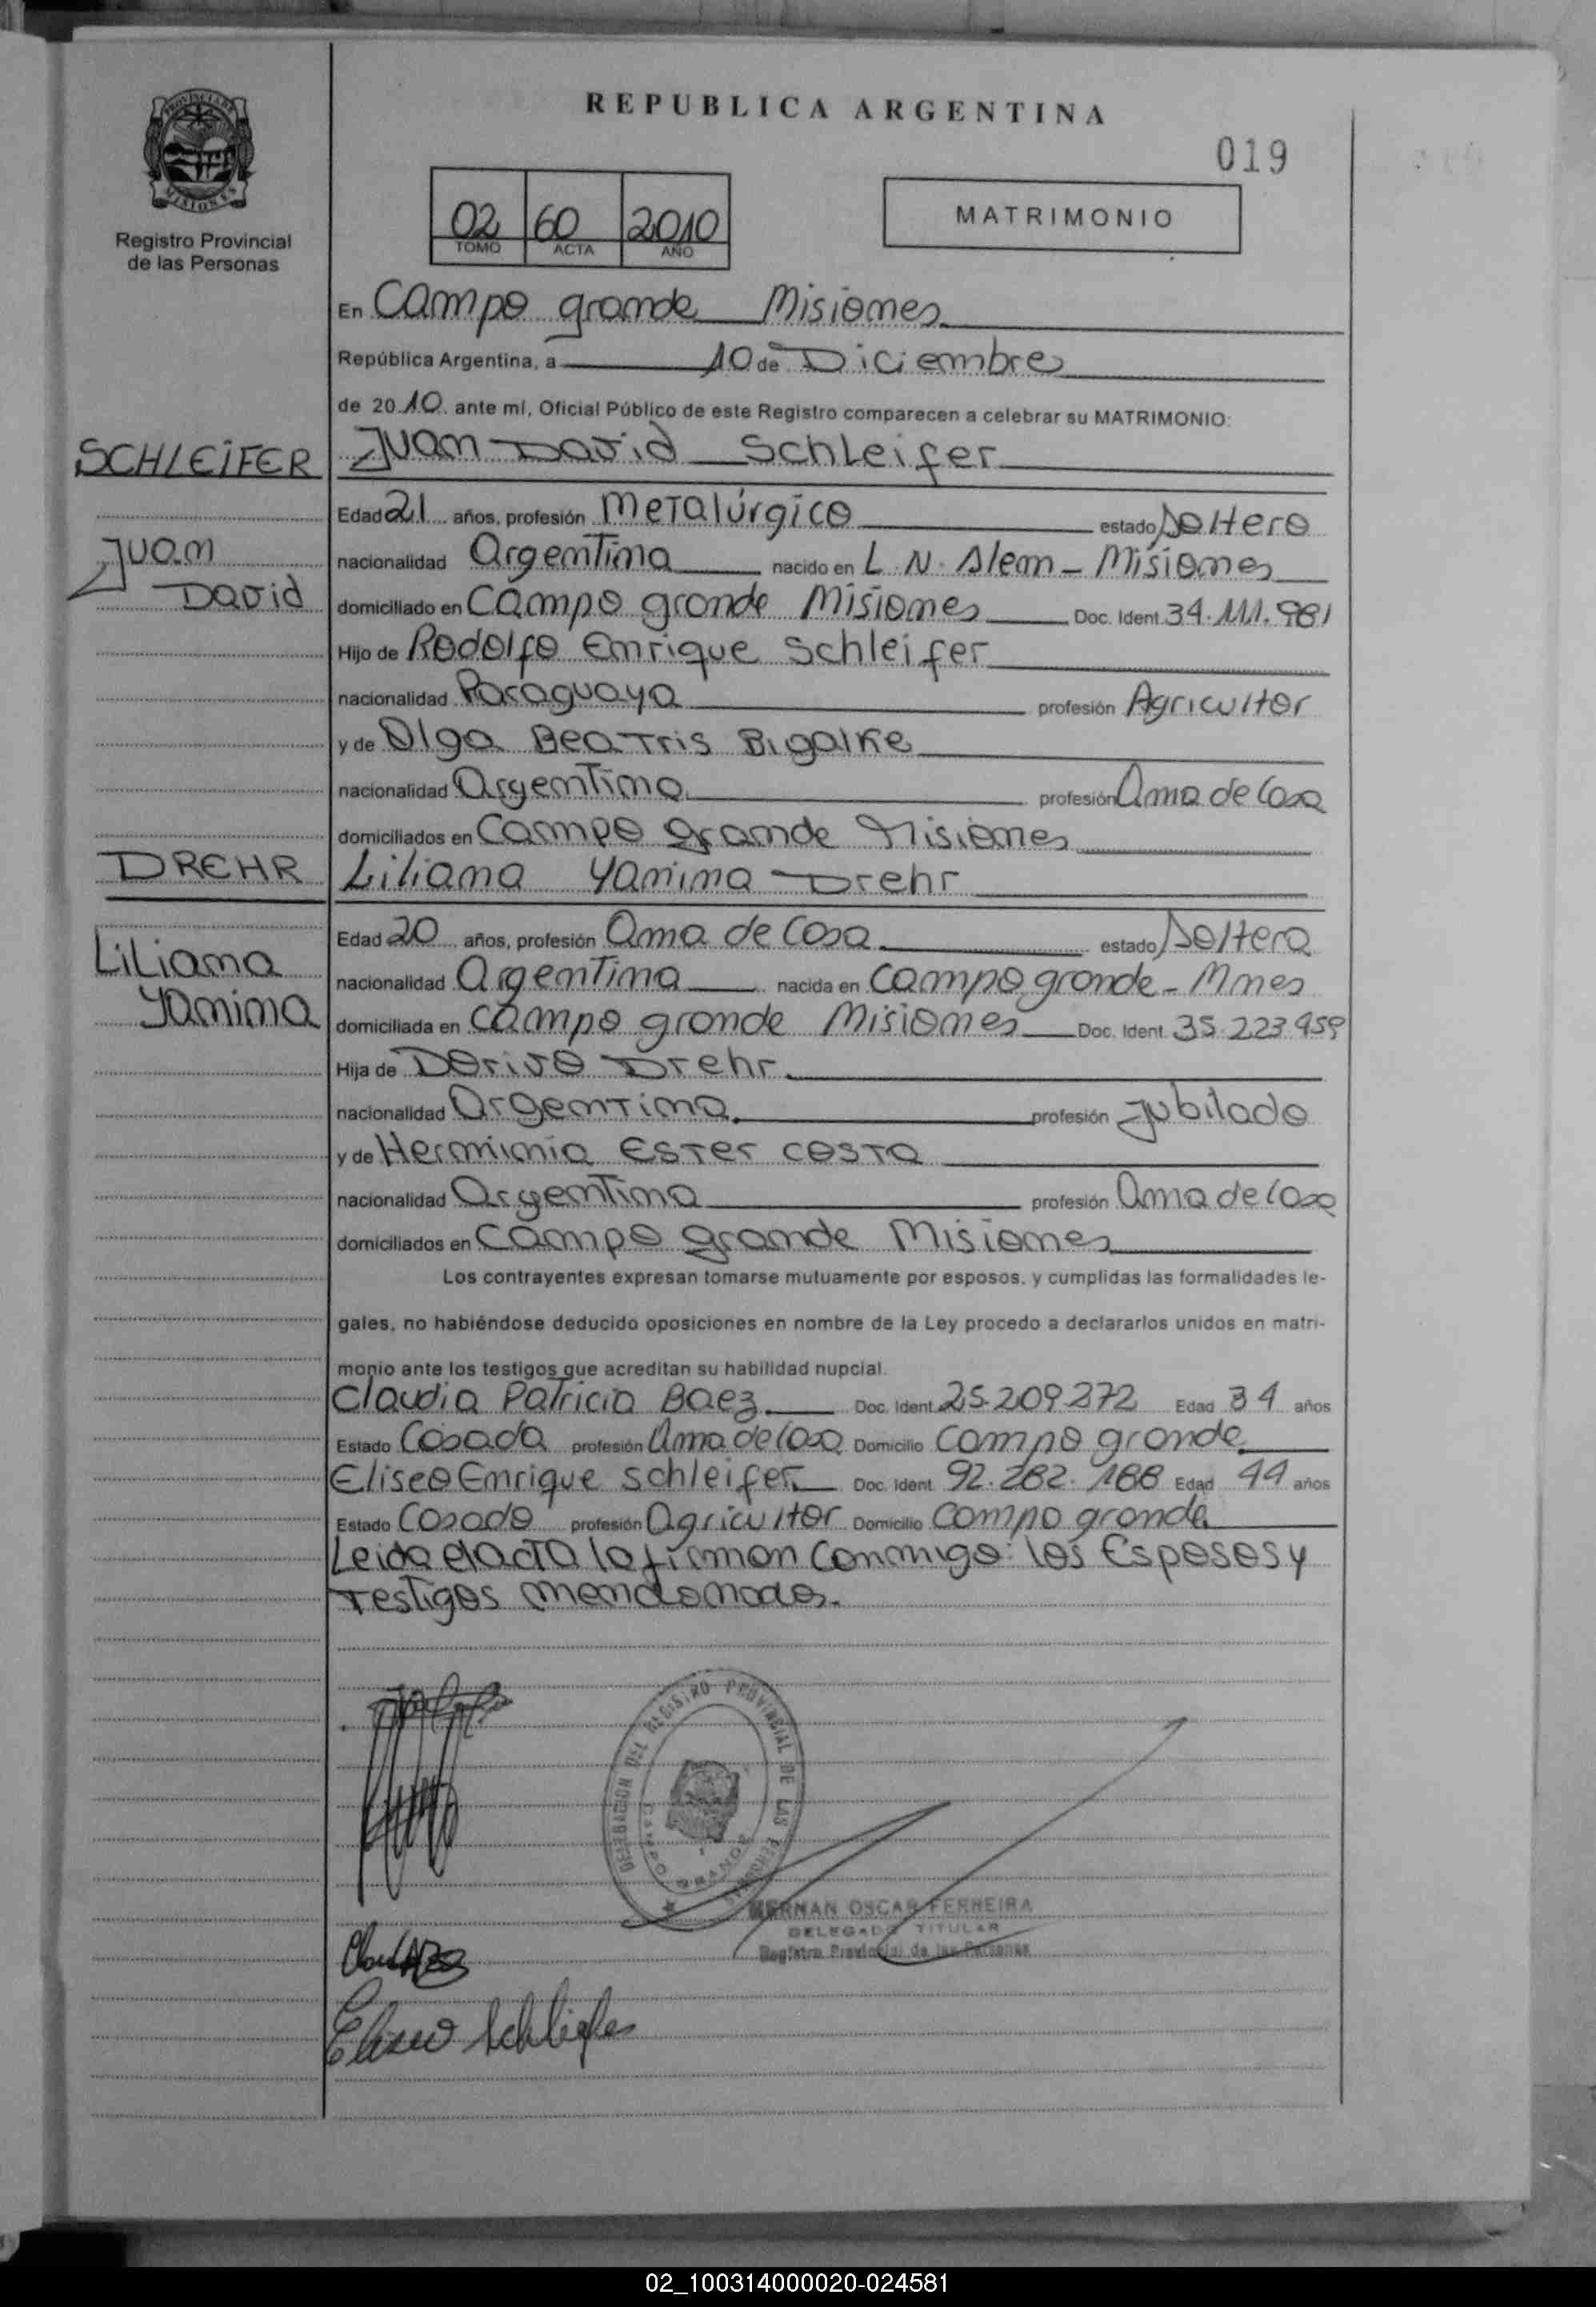 REPUBLICA ARGENTINA
019
PROVINCIA DE
MISIONES
Registro Provincial
de las Personas
02 60 2010
TOMO ACTA AÑO
MATRIMONIO
En Campo grande Misiones
República Argentina, a 10 de Diciembre
de 2010 ante mí, Oficial Público de este Registro comparecen a celebrar su MATRIMONIO:
SCHLEIFER Juan David Schleifer
Edad 21 años, profesión Metalúrgico estado Soltero
Juan
David
nacionalidad Argentina nacido en L. N. Alem - Misiones
domiciliado en Campo grande Misiones Doc. Ident. 34.111.981
Hijo de Rodolfo Enrique Schleifer
nacionalidad Paraguaya profesión Agricultor
y de Olga Beatris Bigalke
nacionalidad Argentina profesión Ama de Casa
domiciliados en Campo grande Misiones
DREHR Liliana Yanina Drehr
Edad 20 años, profesión Ama de Casa estado Soltera
Liliana
Yanina
nacionalidad Argentina nacida en Campo grande - Mnes
domiciliada en Campo grande Misiones Doc. Ident. 35.223.959
Hija de Dorivo Drehr
nacionalidad Argentina profesión Jubilado
y de Herminia Ester Costa
nacionalidad Argentina profesión Ama de Casa
domiciliados en Campo grande Misiones
Los contrayentes expresan tomarse mutuamente por esposos, y cumplidas las formalidades le-
gales, no habiéndose deducido oposiciones en nombre de la Ley procedo a declararlos unidos en matri-
monio ante los testigos que acreditan su habilidad nupcial.
Claudia Patricia Baez Doc. Ident. 25.209.272 Edad 34 años
Estado Casada profesión Ama de Casa Domicilio Campo grande
Eliseo Enrique Schleifer Doc. Ident. 92.282.188 Edad 44 años
Estado Casado profesión Agricultor Domicilio Campo grande
Leida el acta la firman conmigo: los Esposos y
Testigos mencionados.
DELEGACION DEL REGISTRO PROVINCIAL DE LAS PERSONAS
CAMPO GRANDE
HERNAN OSCAR FERREIRA
DELEGADO TITULAR
Registro Provincial de las Personas
Eliseo Schleifer
02_100314000020-024581